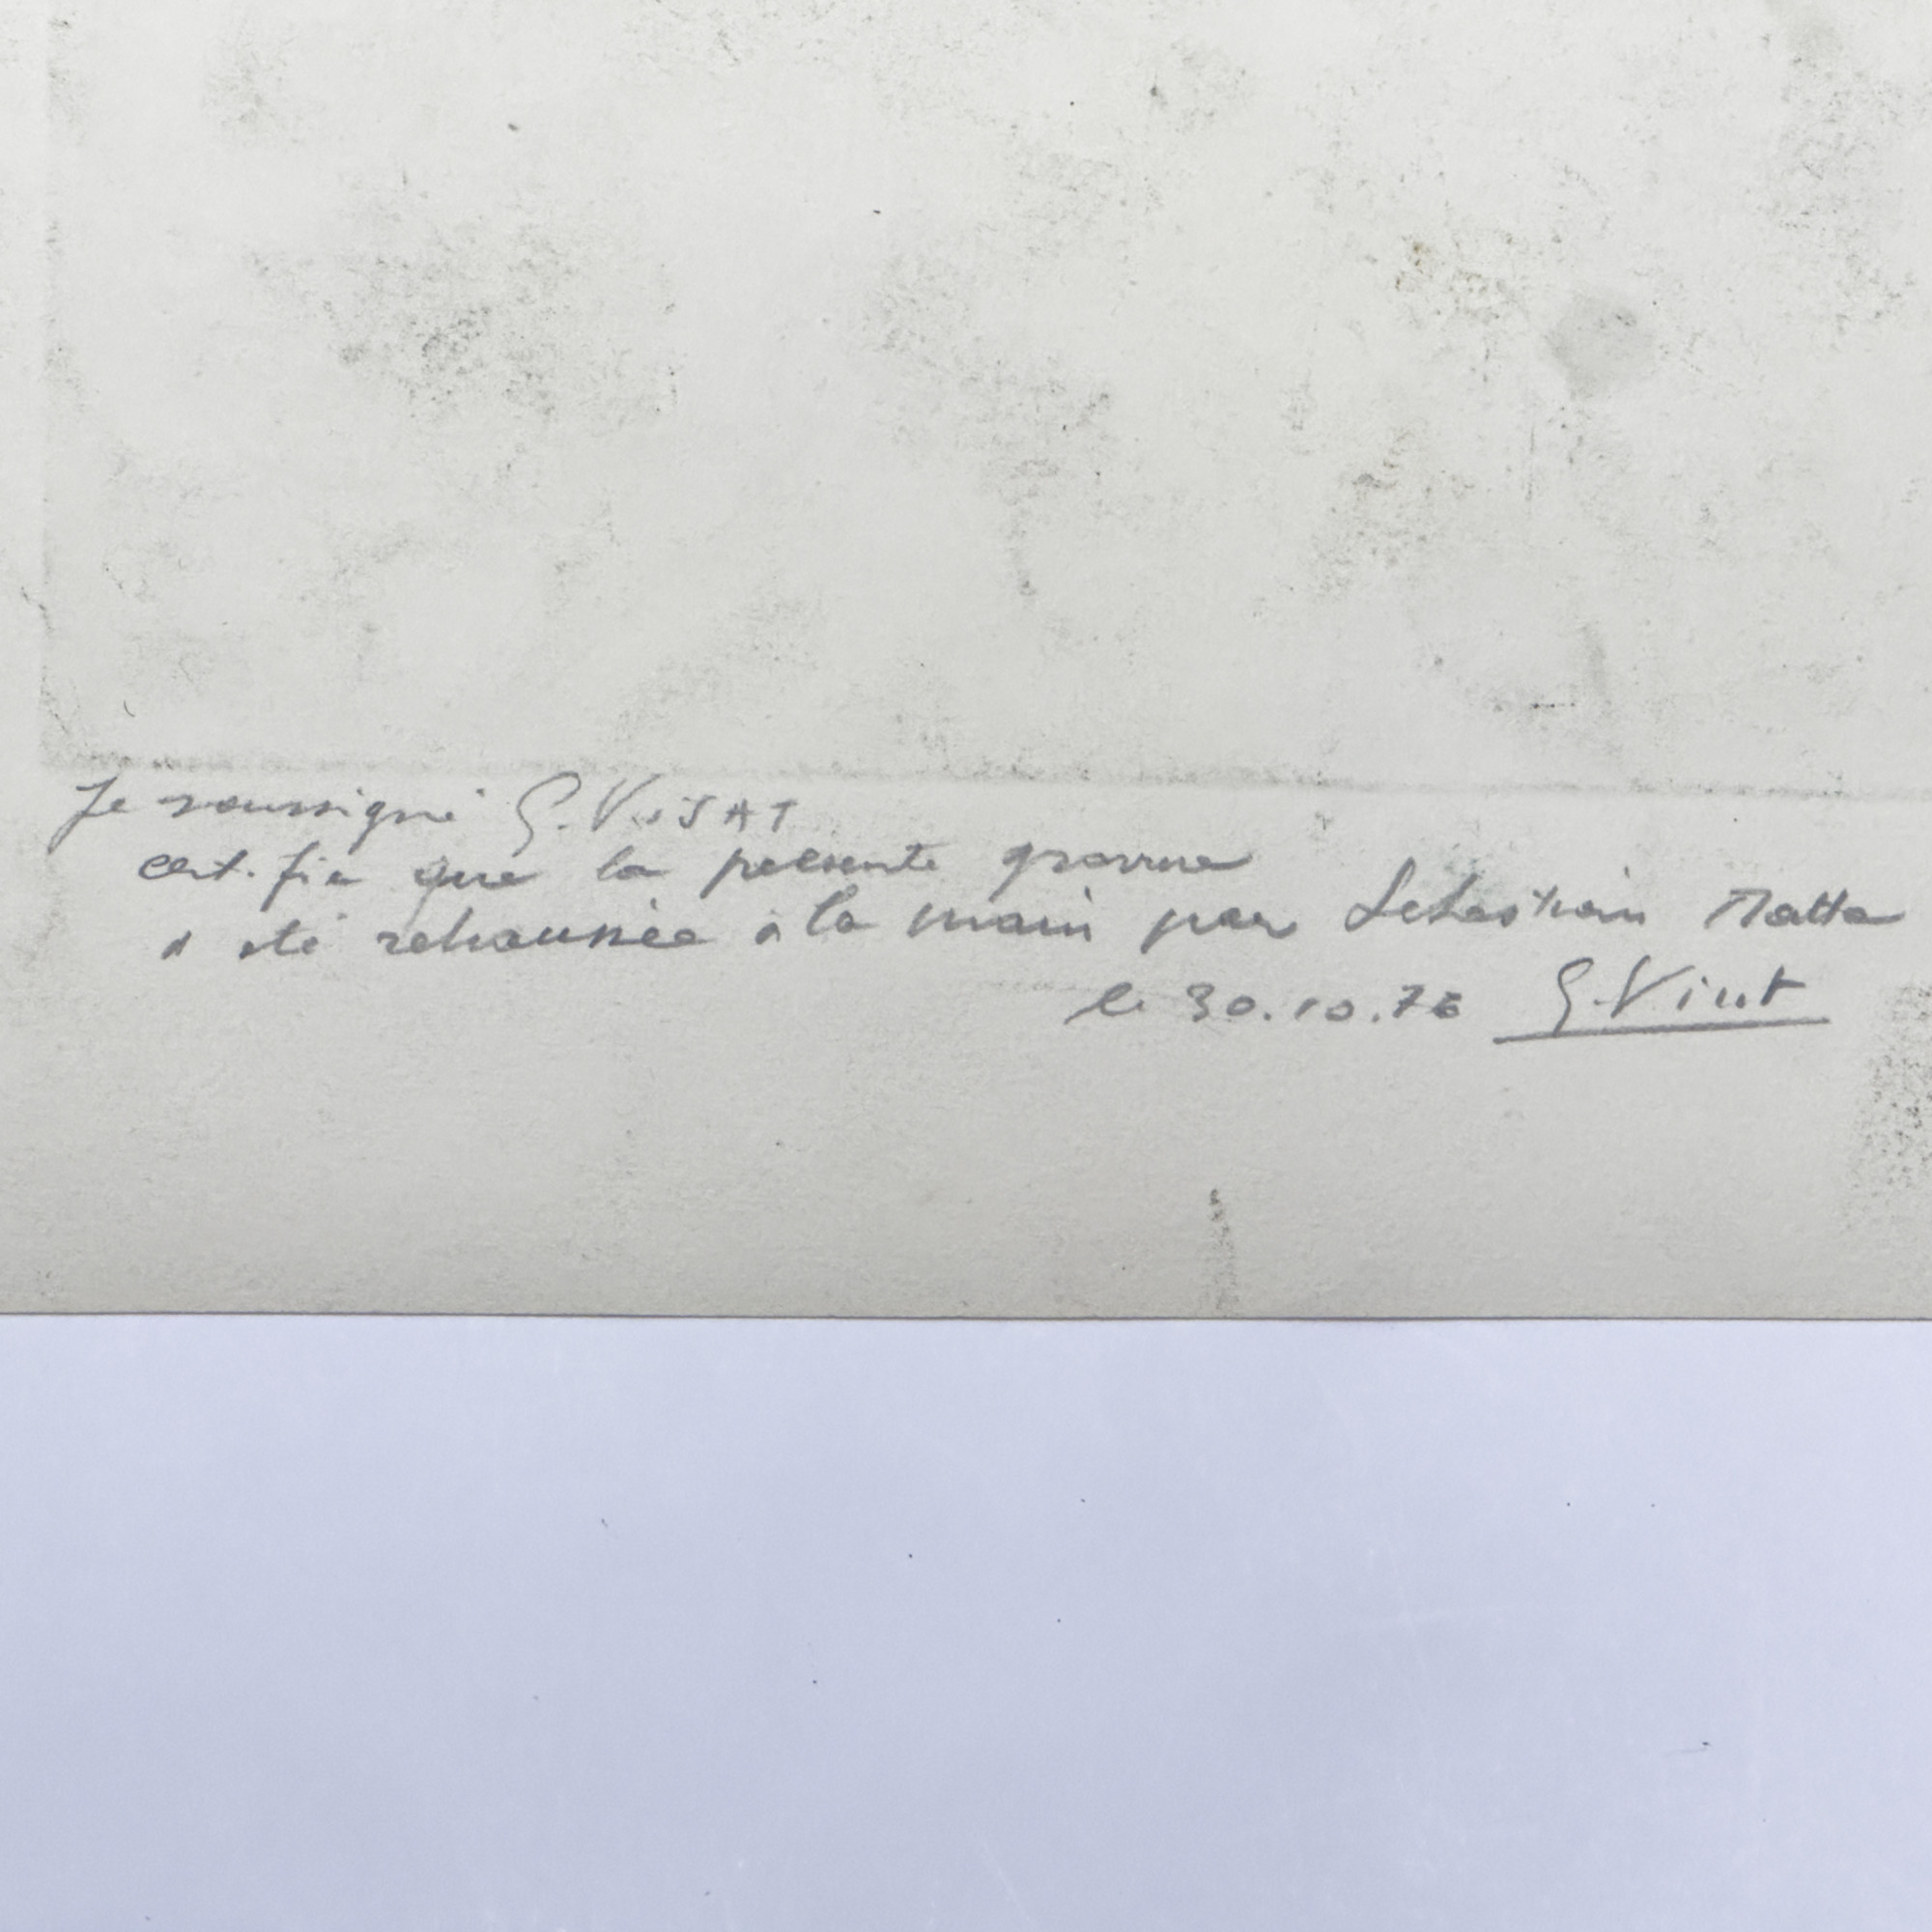 Je soussigné G. ViSAT
certifie que la présente gravure
a été rehaussée à la main par Sebastian Matta
le 30.10.76 G.Visat